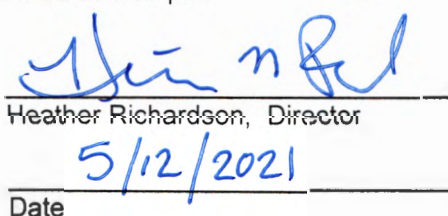 Heather Richardson, Director
5/12/2021
Date